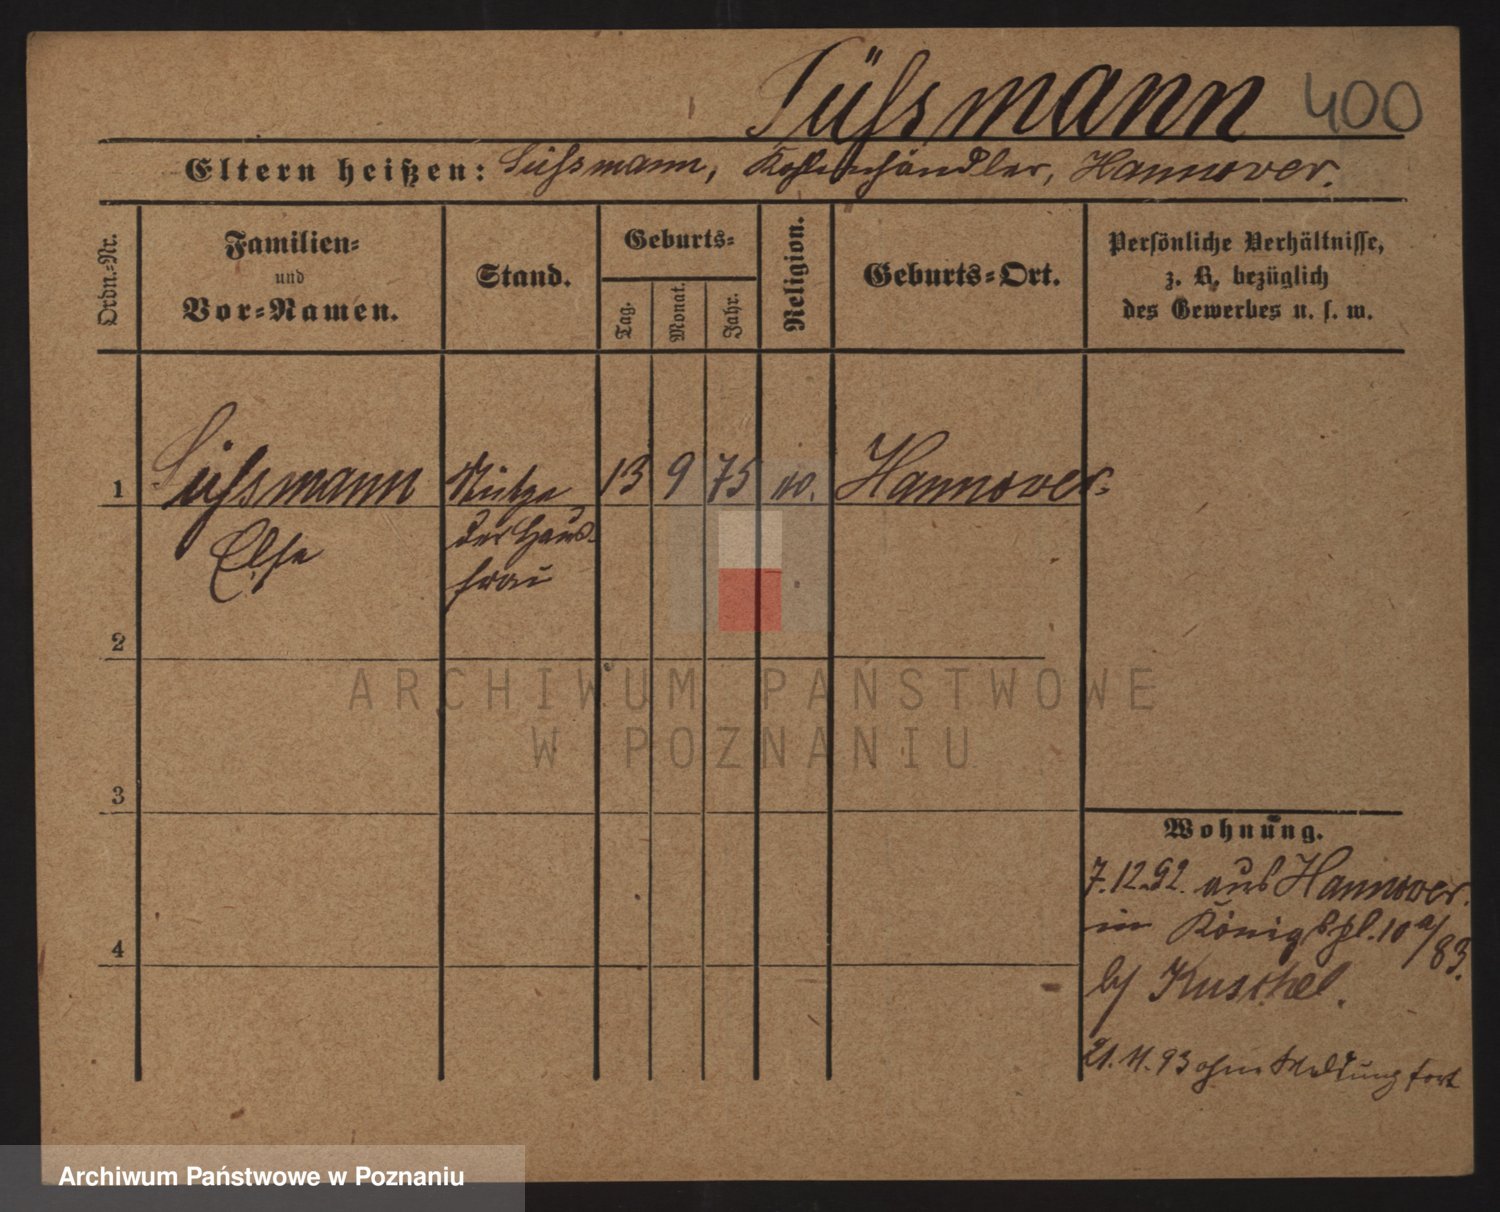 Süßmann 400
Eltern heißen: Süßmann, Kohlenhändler, Hannover.
Ordn.-Nr.
Familien-
und
Vor-Namen.
Stand.
Geburts-
Tag.
Monat.
Jahr.
Religion.
Geburts-Ort.
Persönliche Verhältnisse,
z. B. bezüglich
des Gewerbes u. s. w.
1 Süßmann Stütze 13 9 75 Hannover.
Else der Haus-
frau
2
3
4
Wohnung.
7.12.92. aus Hannover.
in Königspl. 10 a/83.
b/ Kuschel.
21.11.93 ohne Meldung fort
ARCHIWUM PAŃSTWOWE
W POZNANIU
Archiwum Państwowe w Poznaniu